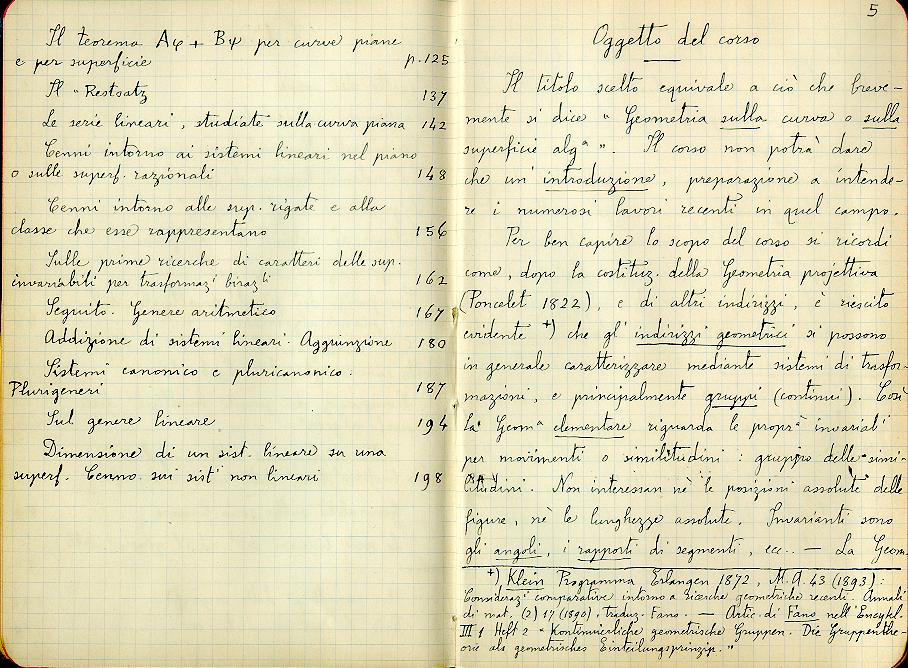 Il teorema Aφ + Bψ per curve piane
e per superficie p. 125
Il "Restsatz 137
Le serie lineari, studiate sulla curva piana 142
Cenni intorno ai sistemi lineari nel piano
o sulle superf. razionali 148
Cenni intorno alle sup. rigate e alla
classe che esse rappresentano 156
Sulle prime ricerche di caratteri delle sup.
invariabili per trasformazⁱ birazˡⁱ 162
Seguito. Genere aritmetico 167
Addizione di sistemi lineari. Aggiunzione 180
Sistemi canonico e pluricanonico.
Plurigeneri 187
Sul genere lineare 194
Dimensione di un sist. lineare su una
superf. Cenno sui sistⁱ non lineari 198
5
Oggetto del corso
Il titolo scelto equivale a ciò che breve-
mente si dice "Geometria sulla curva o sulla
superficie algᵃ". Il corso non potrà dare
che un'introduzione, preparazione a intende-
re i numerosi lavori recenti in quel campo.
Per ben capire lo scopo del corso si ricordi
come, dopo la costituz. della Geometria projettiva
(Poncelet 1822), e di altri indirizzi, è riescito
evidente +) che gl' indirizzi geometrici si possono
in generale caratterizzare mediante sistemi di trasfor-
mazioni, e principalmente gruppi (continui). Così
la Geomᵃ elementare riguarda le proprᵃ̀ invariabˡⁱ
per movimenti o similitudini: gruppo delle simi-
litudini. Non interessan nè le posizioni assolute delle
figure, nè le lunghezze assolute. Invarianti sono
gli angoli, i rapporti di segmenti, ecc.. — La Geom.
+) Klein Programma Erlangen 1872, M.A. 43 (1893):
Considerazⁱ comparative intorno a ricerche geometriche recenti. Annali
di mat. (2) 17 (1890). traduz. Fano. — Artic. di Fano nell'Encykl.
III 1 Heft 2 "Kontinuierliche geometrische Gruppen. Die Gruppenthe-
orie als geometrisches Einteilungsprinzip."